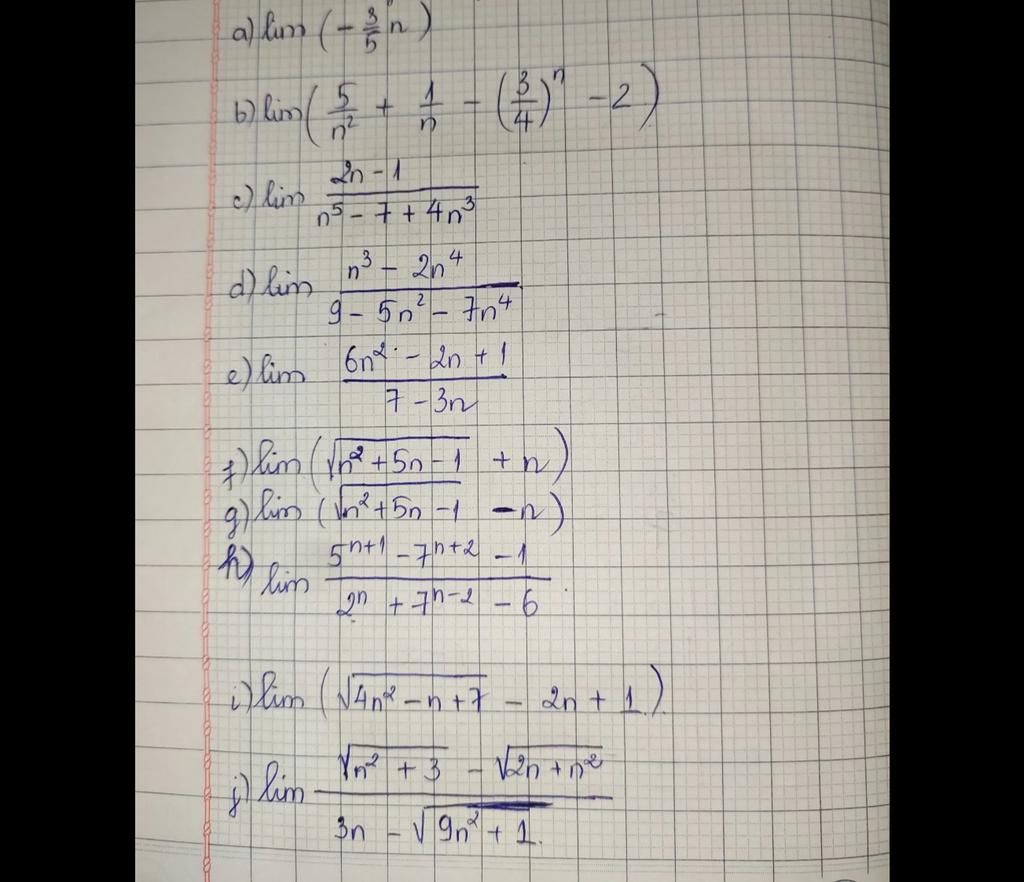 a) lim (-3/5 n)
b) lim (5/n² + 1/n - (3/4)ⁿ - 2)
c) lim (2n - 1)/(n⁵ - 7 + 4n³)
d) lim (n³ - 2n⁴)/(9 - 5n² - 7n⁴)
e) lim (6n² - 2n + 1)/(7 - 3n)
f) lim (√(n² + 5n - 1) + n)
g) lim (√(n² + 5n - 1) - n)
h) lim (5ⁿ⁺¹ - 7ⁿ⁺² - 1)/(2ⁿ + 7ⁿ⁻² - 6)
i) lim (√(4n² - n + 7) - 2n + 1)
j) lim (√(n² + 3) - √(2n + n²))/(3n - √(9n² + 1))